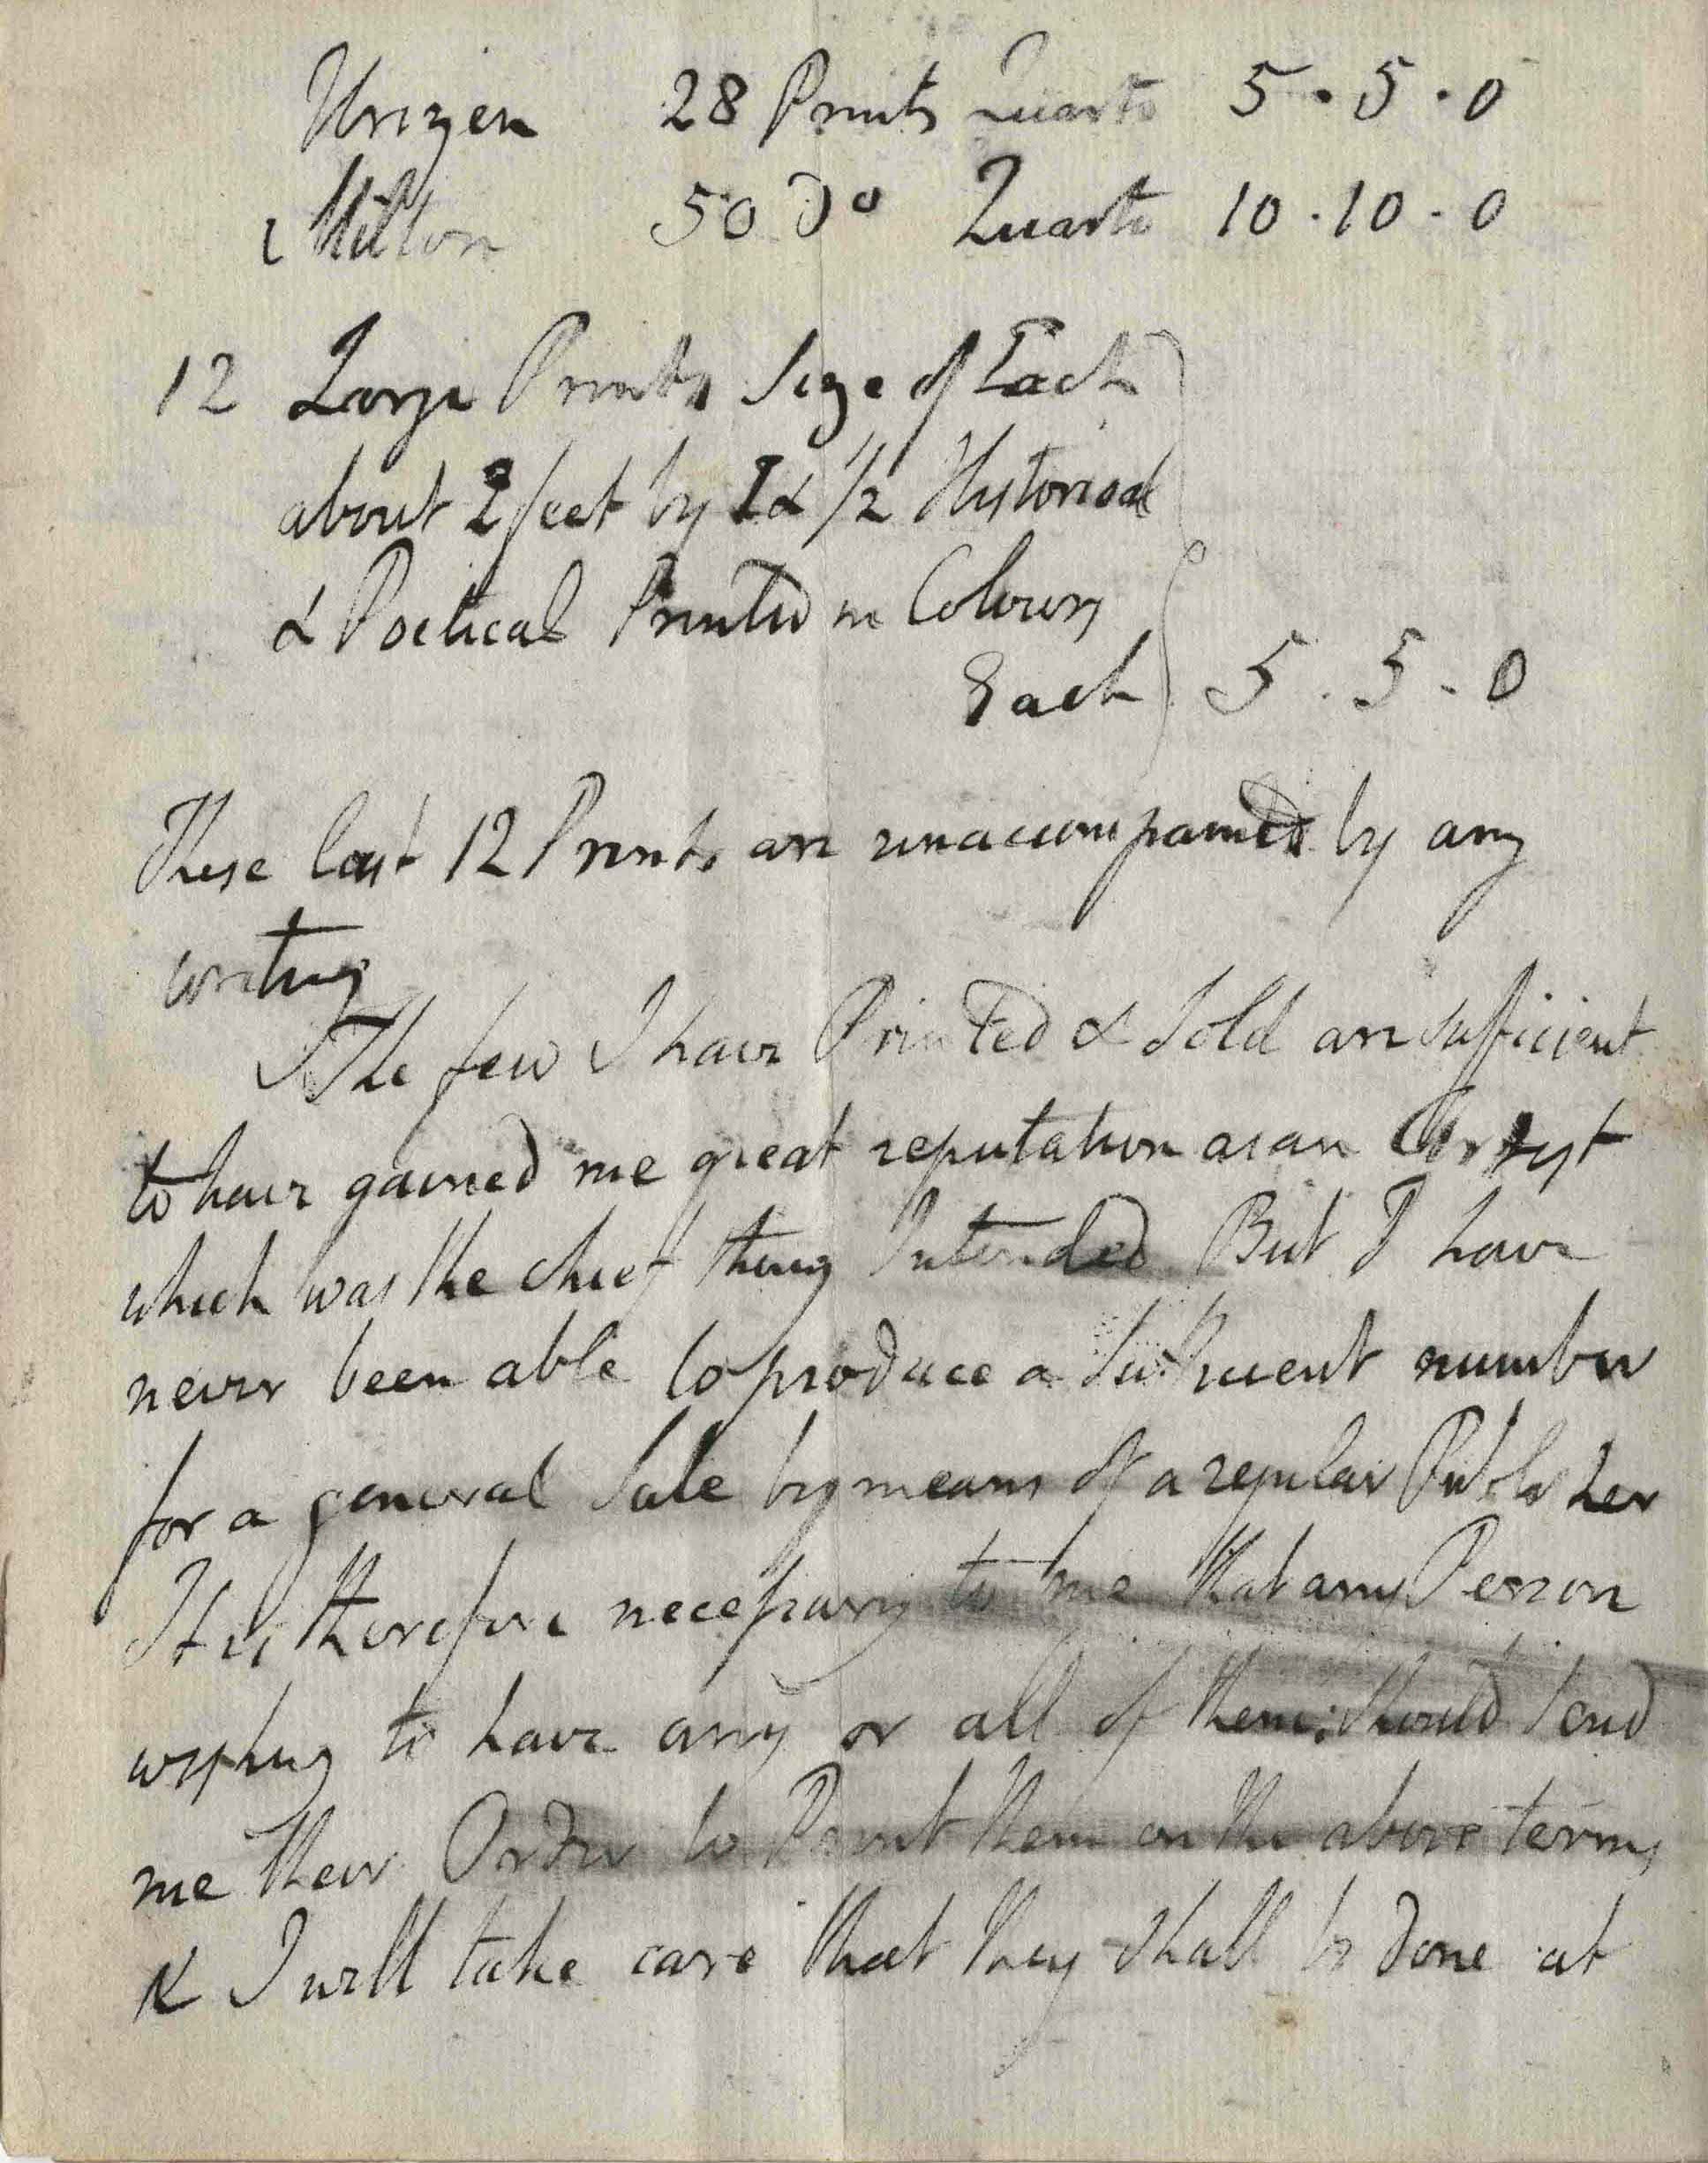 Urizen 28 Prints Quarto 5 . 5 . 0
Milton 50 Do Quarto 10 . 10 . 0
12 Large Prints Size of Each
about 2 feet by 1 & 1/2 Historical
& Poetical Printed in Colours
Each 5 . 5 . 0
These last 12 Prints are unaccompanied by any
writing
The few I have Printed & Sold are sufficient
to have gained me great reputation as an Artist
which was the chief thing Intended But I have
never been able to produce a Sufficient number
for a general Sale by means of a regular Publisher
It is therefore necessary to me that any Person
wishing to have any or all of them should Send
me their Order to Print them on the above terms
& I will take care that they shall be done at